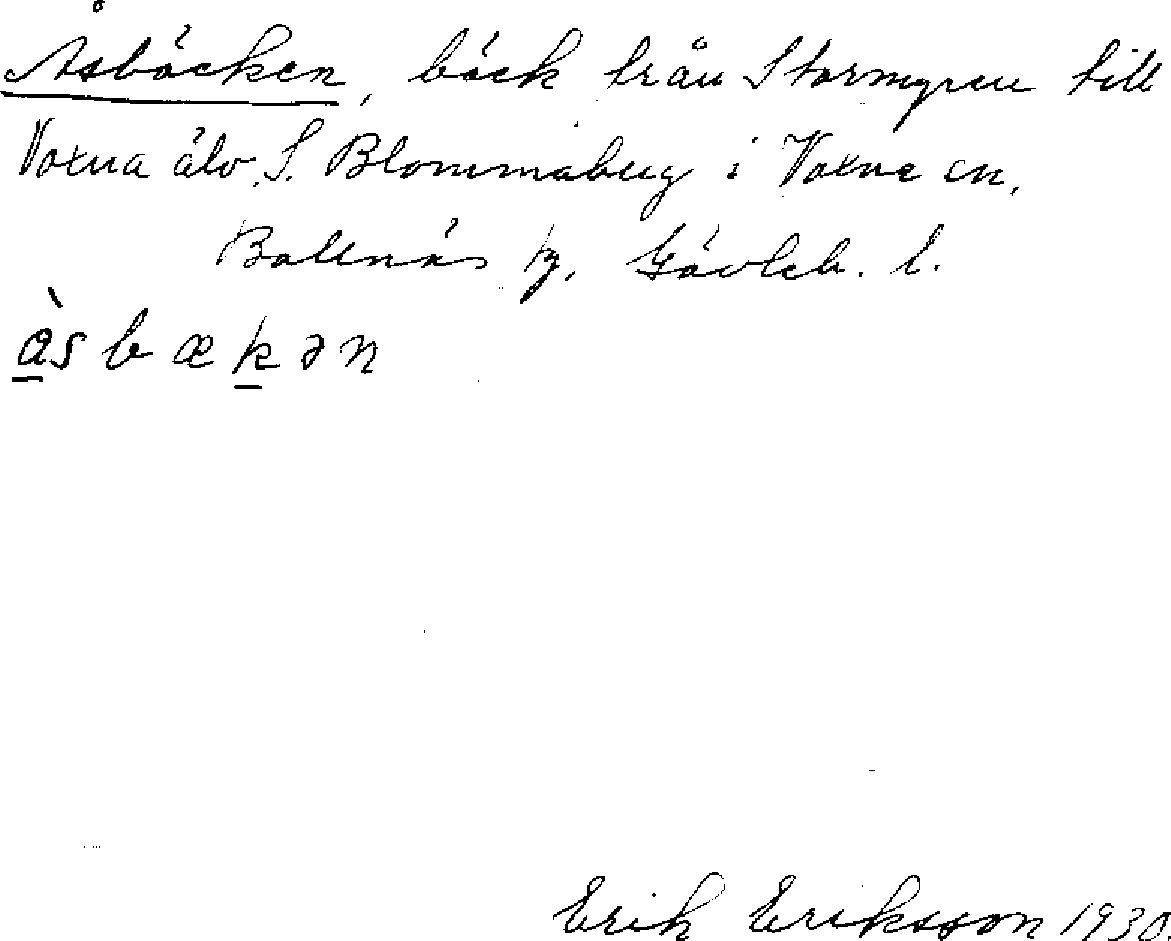 Åsbäcken, bäck från Stormyren till
Voxna älv, S. Blommaberg i Voxna sn,
Bollnäs pg, Gävleb. l.
à̲sbæk̲ən
Erik Eriksson 1930.